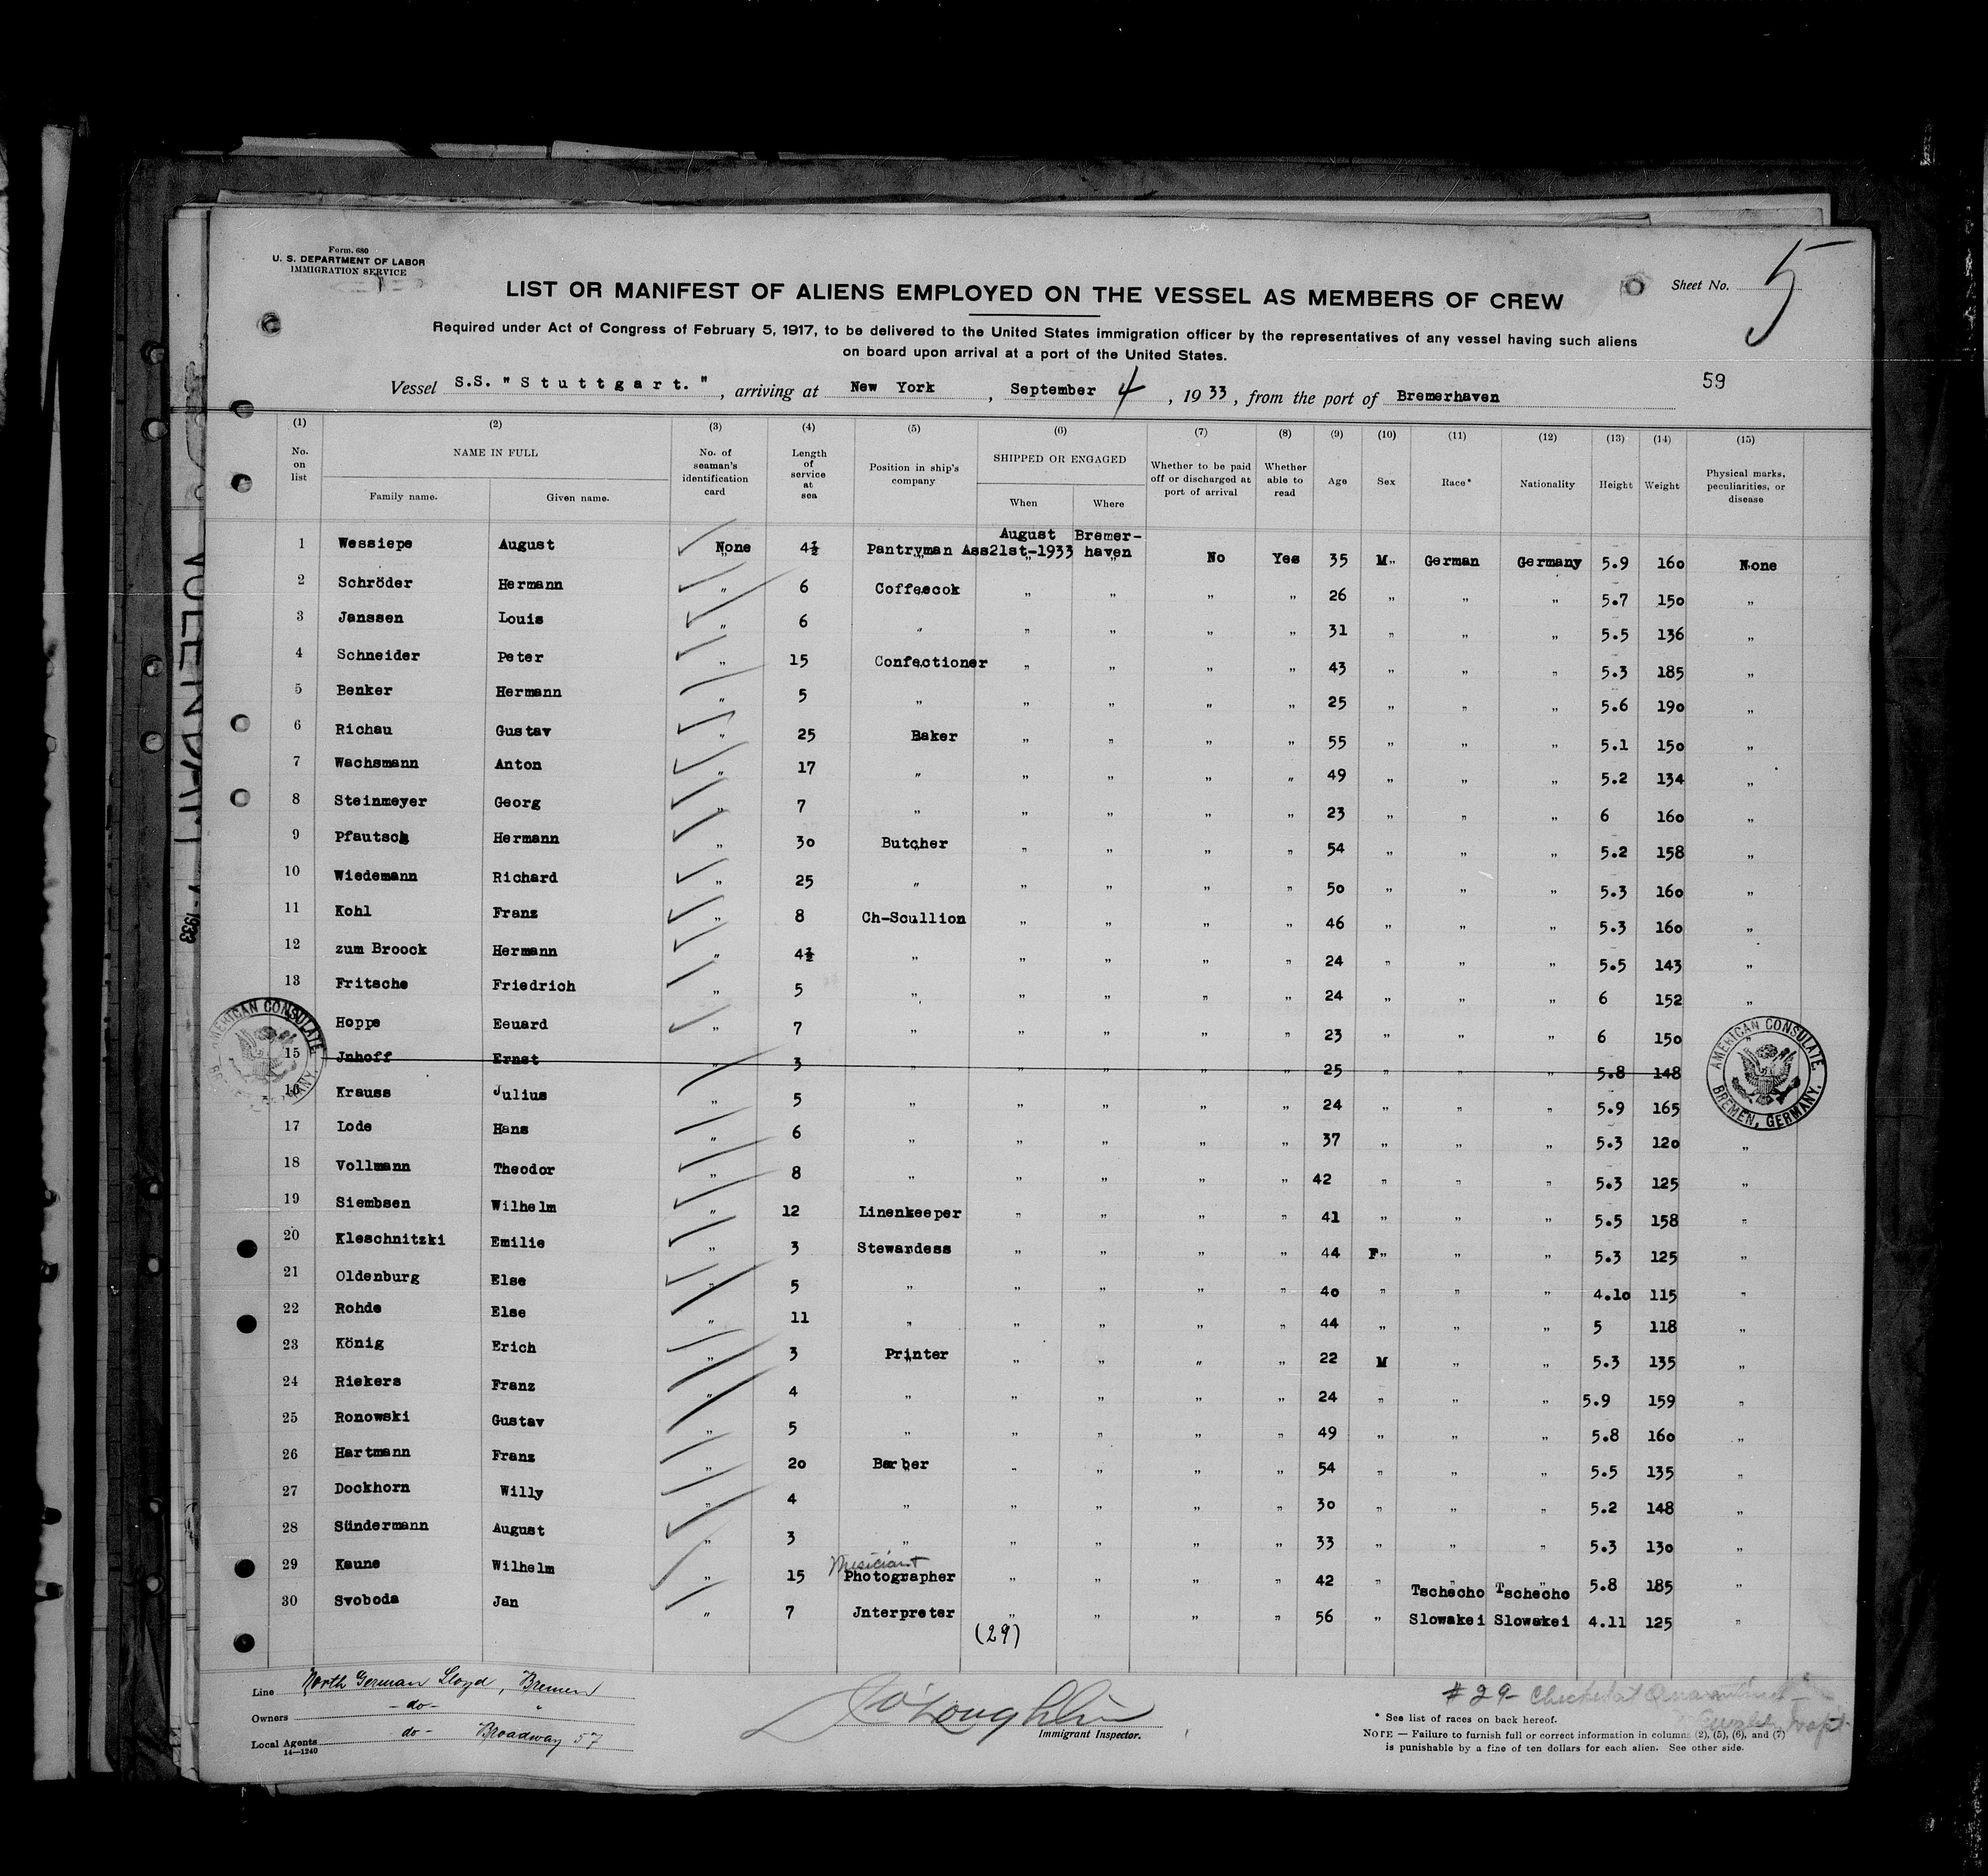 Form. 680
U. S. DEPARTMENT OF LABOR
IMMIGRATION SERVICE
Sheet No. 5
LIST OR MANIFEST OF ALIENS EMPLOYED ON THE VESSEL AS MEMBERS OF CREW
Required under Act of Congress of February 5, 1917, to be delivered to the United States immigration officer by the representatives of any vessel having such aliens
on board upon arrival at a port of the United States.
59
Vessel S.S. "Stuttgart.", arriving at New York, September 4, 1933, from the port of Bremerhaven
(1) (2) (3) (4) (5) (6) (7) (8) (9) (10) (11) (12) (13) (14) (15)
No. on list NAME IN FULL Family name. Given name. No. of seaman's identification card Length of service at sea Position in ship's company SHIPPED OR ENGAGED When Where Whether to be paid off or discharged at port of arrival Whether able to read Age Sex Race* Nationality Height Weight Physical marks, peculiarities, or disease
1 Wessiepe August None 4½ Pantryman Ass August 21st-1933 Bremer-haven No Yes 35 M German Germany 5.9 160 None
2 Schröder Hermann " 6 Coffeecok " " " " 26 " " " 5.7 150 "
3 Janssen Louis " 6 " " " " " 31 " " " 5.5 136 "
4 Schneider Peter " 15 Confectioner " " " " 43 " " " 5.3 185 "
5 Benker Hermann " 5 " " " " " 25 " " " 5.6 190 "
6 Richau Gustav " 25 Baker " " " " 55 " " " 5.1 150 "
7 Wachsmann Anton " 17 " " " " " 49 " " " 5.2 134 "
8 Steinmeyer Georg " 7 " " " " " 23 " " " 6 160 "
9 Pfautsch Hermann " 30 Butcher " " " " 54 " " " 5.2 158 "
10 Wiedemann Richard " 25 " " " " " 50 " " " 5.3 160 "
11 Kohl Franz " 8 Ch-Scullion " " " " 46 " " " 5.3 160 "
12 zum Broock Hermann " 4½ " " " " " 24 " " " 5.5 143 "
13 Fritsche Friedrich " 5 " " " " " 24 " " " 6 152 "
Hoppe Eeuard " 7 " " " " " 23 " " " 6 150
15 Jnhoff Ernst " 3 " " " " " 25 " " " 5.8 148
16 Krauss Julius " 5 " " " " " 24 " " " 5.9 165
17 Lode Hans " 6 " " " " " 37 " " " 5.3 120 "
18 Vollmann Theodor " 8 " " " " " 42 " " " 5.3 125 "
19 Siembsen Wilhelm " 12 Linenkeeper " " " " 41 " " " 5.5 158 "
20 Kleschnitzki Emilie " 3 Stewardess " " " " 44 F " " 5.3 125 "
21 Oldenburg Else " 5 " " " " " 40 " " " 4.10 115 "
22 Rohde Else " 11 " " " " " 44 " " " 5 118 "
23 König Erich " 3 Printer " " " " 22 M " " 5.3 135 "
24 Riekers Franz " 4 " " " " " 24 " " " 5.9 159 "
25 Ronowski Gustav " 5 " " " " " 49 " " " 5.8 160 "
26 Hartmann Franz " 20 Barber " " " " 54 " " " 5.5 135 "
27 Dockhorn Willy " 4 " " " " " 30 " " " 5.2 148 "
28 Sündermann August " 3 " " " " " 33 " " " 5.3 130 "
29 Kaune Wilhelm " 15 Musiciant Photographer " " " " 42 " " " 5.8 185 "
30 Svoboda Jan " 7 Jnterpreter " " " " 56 " Tschecho Slowakei Tschecho Slowakei 4.11 125 "
(29)
AMERICAN CONSULATE
BREMEN, GERMANY.
AMERICAN CONSULATE.
BREMEN, GERMANY.
VOLENDAM
1933
Line North German Lloyd, Bremen
Owners -do- "
Local Agents do- Broadway 57
14—1240
O'Loughlin
Immigrant Inspector.
#29- Checked at Quarantine
* See list of races on back hereof.
NOTE — Failure to furnish full or correct information in columns (2), (5), (6), and (7)
is punishable by a fine of ten dollars for each alien. See other side.